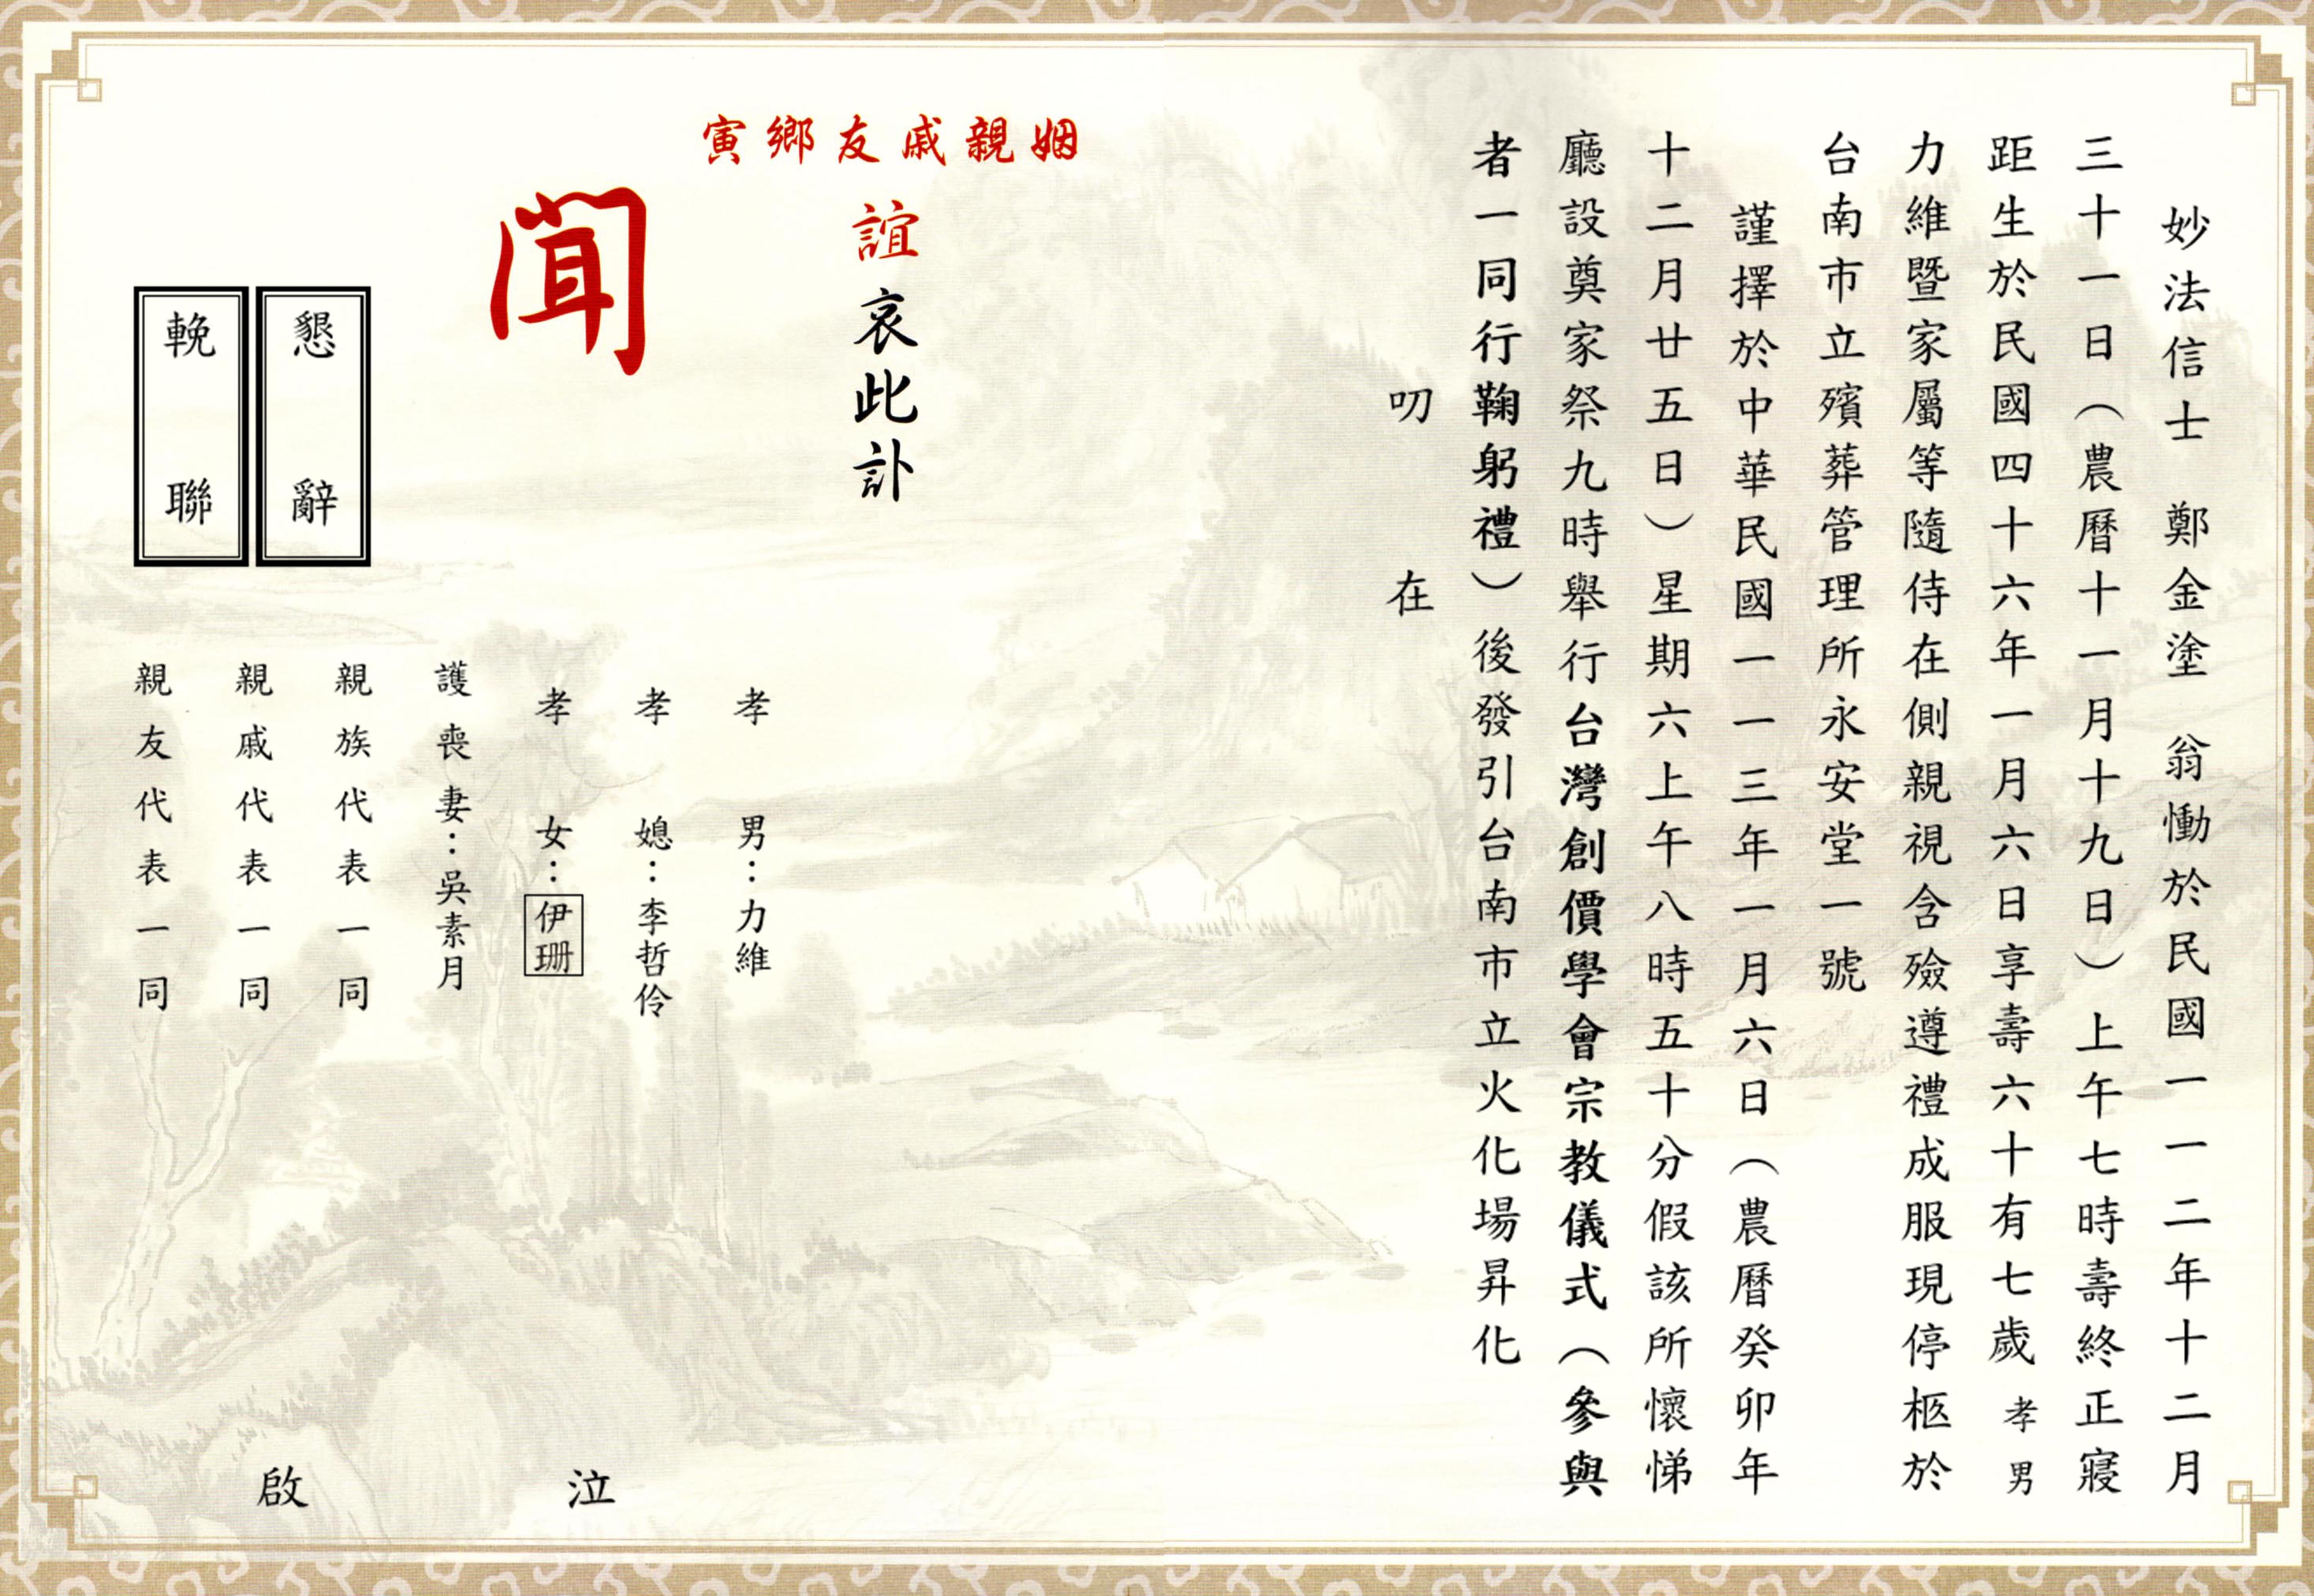 妙法信士　鄭金塗　翁慟於民國一一二年十二月
三十一日（農曆十一月十九日）上午七時壽終正寢
距生於民國四十六年一月六日享壽六十有七歲　孝男
力維暨家屬等隨侍在側親視含殮遵禮成服現停柩於
台南市立殯葬管理所永安堂一號
謹擇於中華民國一一三年一月六日（農曆癸卯年
十二月廿五日）星期六上午八時五十分假該所懷悌
廳設奠家祭九時舉行台灣創價學會宗教儀式（參與
者一同行鞠躬禮）後發引台南市立火化場昇化
叨　在
姻親戚友鄉寅
誼哀此訃
聞
孝男：力維
孝媳：李哲伶
孝女：伊珊
護喪妻：吳素月
親族代表一同
親戚代表一同
親友代表一同
泣　啟
懇辭
輓聯